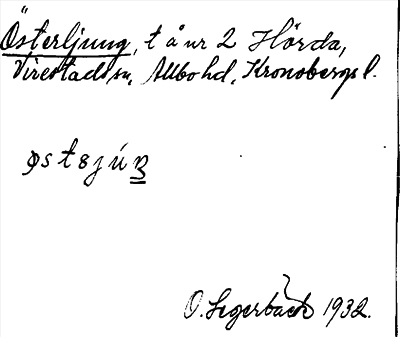 Österljung, t å nr 2 Hörda,
Virestads sn, Allbo hd, Kronobergs l.
østsjúŋ
O. Segerbäck 1932.